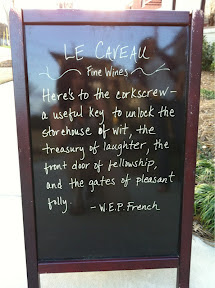 LE CAVEAU
Fine Wines
Here's to the corkscrew—
a useful key to unlock the
storehouse of wit, the
treasury of laughter, the
front door of fellowship,
and the gates of pleasant
folly.
- W.E.P. French